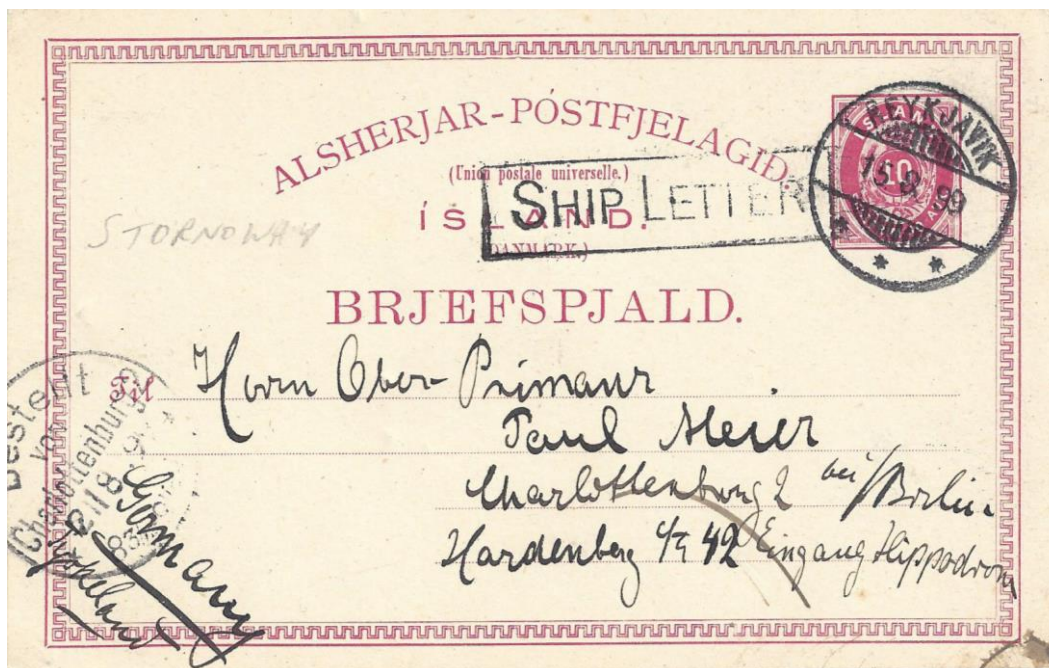 ALSHERJAR-PÓSTFJELAGIÐ.
(Union postale universelle.)
ÍSLAND.
(DANMARK.)
SHIP LETTER
REYKJAVIK
99
10
STORNOWAY
BRJEFSPJALD.
Til Herrn Ober-Primaner
Paul Meier
Charlottenburg 2 bei/Berlin
Hardenberg 42 Eingang Hippodrom
Bestellt
vom
Charlottenburg 2
Germany